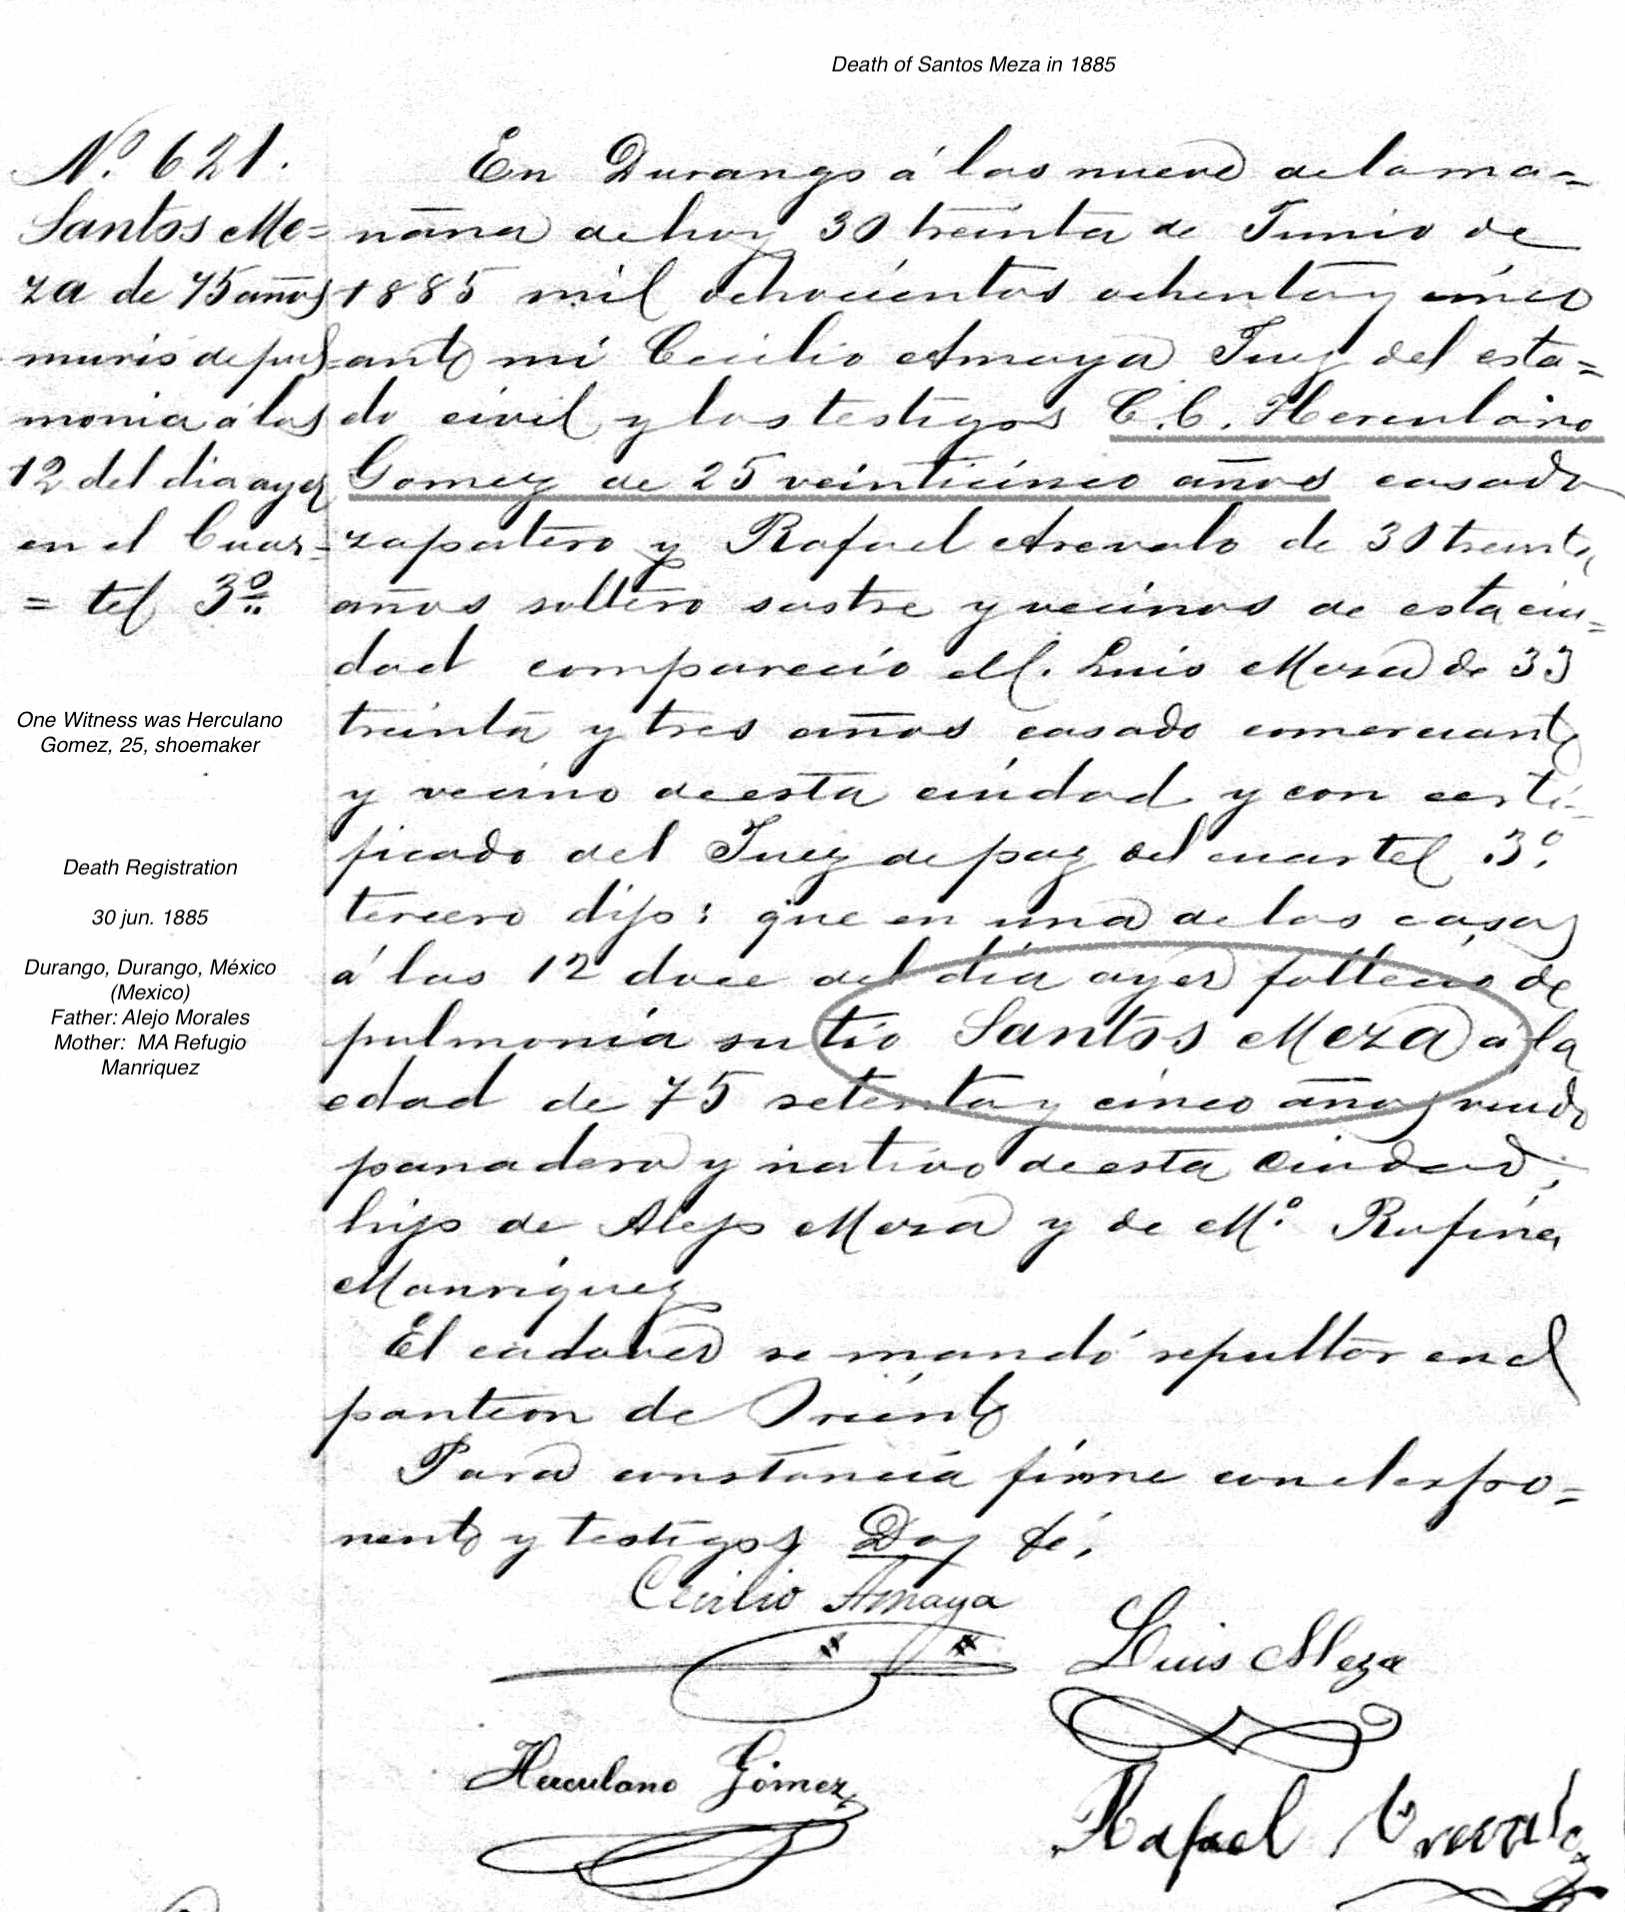 Death of Santos Meza in 1885
Nº 621.
Santos Me=
za de 75 años
murió de pul
monia á las
12 del dia ayer
en el Cuar=
= tel 3º
One Witness was Herculano
Gomez, 25, shoemaker
Death Registration
30 jun. 1885
Durango, Durango, México
(Mexico)
Father: Alejo Morales
Mother: MA Refugio
Manriquez
En Durango á las nueve de la ma=
ñana de hoy 30 treinta de Junio de
1885 mil ochocientos ochenta y cinco
ante mi Cecilio Amaya Juez del esta=
do civil y los testigos C.C. Herculano
Gomez de 25 veinticinco años casado
zapatero y Rafael Arevalo de 30 treinta
años soltero sastre y vecinos de esta ciu=
dad comparecio el C. Luis Meza de 33
treinta y tres años casado comerciante
y vecino de esta ciudad y con certi=
ficado del Juez de paz del cuartel 3º
tercero dijo: que en una de las casas
á las 12 doce del dia ayer fallecio de
pulmonia su tio Santos Meza á la
edad de 75 setenta y cinco años viudo
panadero y nativo de esta Ciudad,
hijo de Alejo Meza y de Mº Rufina
Manriquez
El cadaver se mandó sepultar en el
panteon de Oriente
Para constancia firme con el espo=
nente y testigos Doy fé.
Cecilio Amaya
Luis Meza
Herculano Gómez
Rafael Arevalo